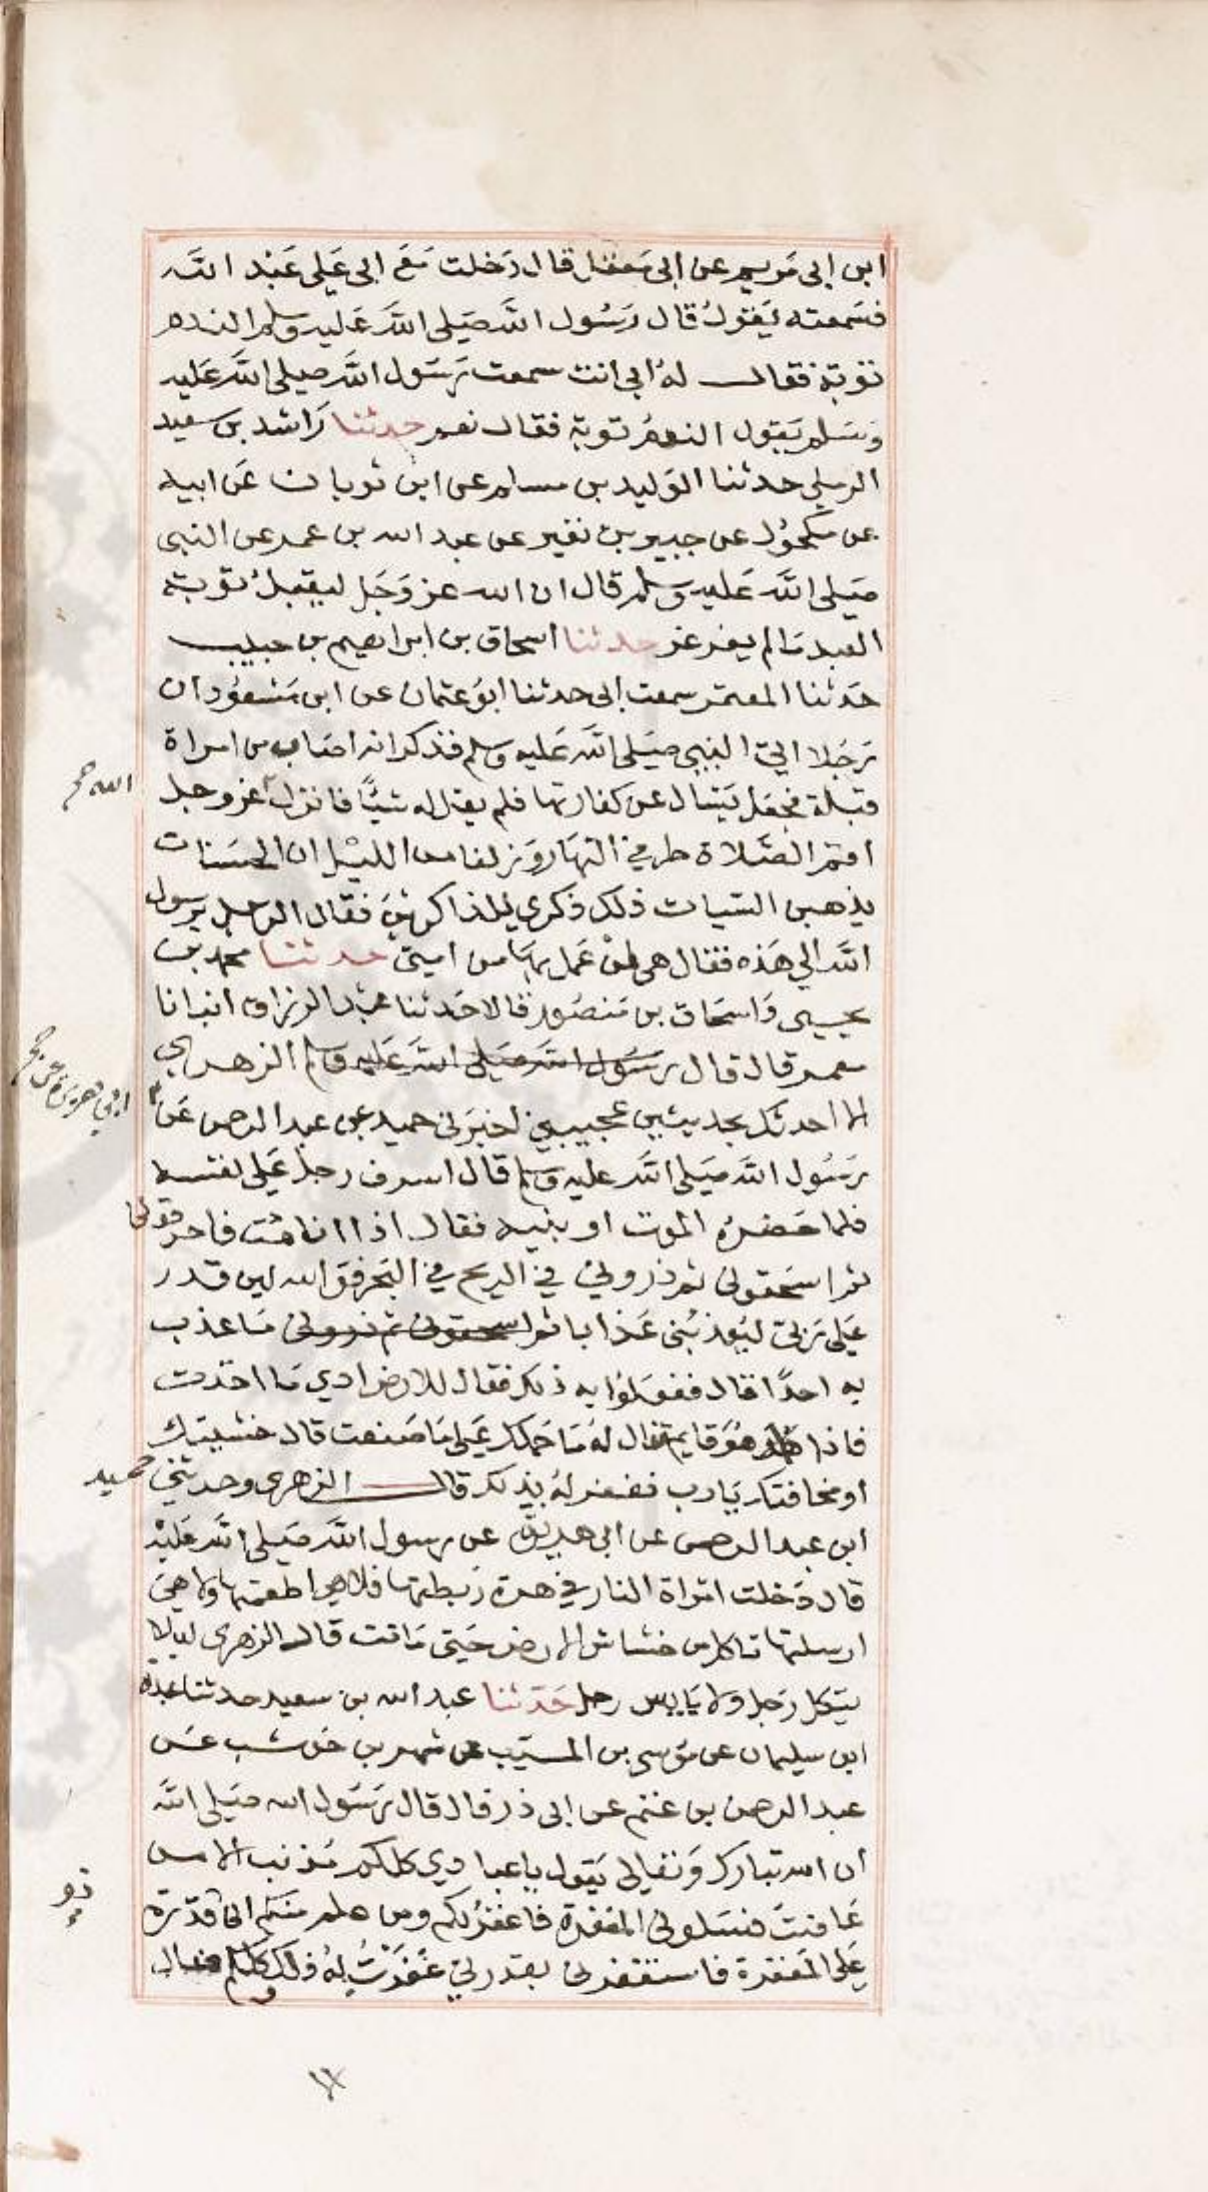 ابن ابي مريم عن ابي معقل قال دخلت مع ابي على عبد الله
فسمعته يقول قال رسول الله صلى الله عليه وسلم الندم
توبة فقال له ابي انت سمعت رسول الله صلى الله عليه
وسلم يقول الندم توبة فقال نعم حدثنا راشد بن سعيد
الرملي حدثنا الوليد بن مسلم عن ابن ثوبان عن ابيه
عن مكحول عن جبير بن نفير عن عبد الله بن عمر عن النبي
صلى الله عليه وسلم قال ان الله عز وجل ليقبل توبة
العبد ما لم يغرغر حدثنا اسحاق بن ابراهيم بن حبيب
حدثنا المعتمر سمعت ابي حدثنا ابو عثمان عن ابن مسعود ان
رجلا اتى النبي صلى الله عليه وسلم فذكر انه اصاب من امراة
قبلة فجعل يسال عن كفارتها فلم يقل له شيًا فانزل عز وجل
الله صح
اقم الصلاة طرفي النهار وزلفا من الليل ان الحسنات
يذهبن السيات ذلك ذكرى للذاكرين فقال الرجل يرسول
الله الي هذه فقال هي لمن عمل بها من امتي حدثنا محمد بن
يحيى واسحاق بن منصور قالا حدثنا عبد الرزاق انبانا
معمر قال قال رسول الله صلى الله عليه وسلم الزهري
الا احدثك بحديثين عجيبين اخبرني حميد بن عبد الرحمن عن
ابي هريرة عن صح
رسول الله صلى الله عليه وسلم قال اسرف رجل على نفسه
فلما حضره الموت اوبنيه فقال اذا انا مت فاحرقوني
ثم اسحقوني ثم ذروني في الريح في البحر فوالله لين قدر
علي ربي ليعذبني عذابا ثم اسحقوني ثم ذروني ما عذب
به احدًا قال ففعلوا به ذلك فقال للارض ادي ما اخذت
فاذا هو قايم فقال له ما حملك على ما صنعت قال خشيتك
او مخافتك يا رب فغفر له بذلك قال الزهري وحدثني حميد
ابن عبد الرحمن عن ابي هريرة عن رسول الله صلى الله عليه
قال دخلت امراة النار في هرة ربطتها فلا هي اطعمتها ولا هي
ارسلتها تاكل من خشاش الارض حتى ماتت قال الزهري ليلا
يتكل رجل ولا يايس رجل حدثنا عبد الله بن سعيد حدثنا عبدة
ابن سليمان عن موسى بن المسيب عن شهر بن حوشب عن
عبد الرحمن بن غنم عن ابي ذر قال قال رسول الله صلى الله
ان الله تبارك وتعالى يقول يا عبادي كلكم مذنب الا من
عافيت فسلوني المغفرة فاغفر لكم ومن علم منكم اني قدرة
ذو
على المغفرة فاستغفرني بقدرتي غفرت له وكلكم ضال